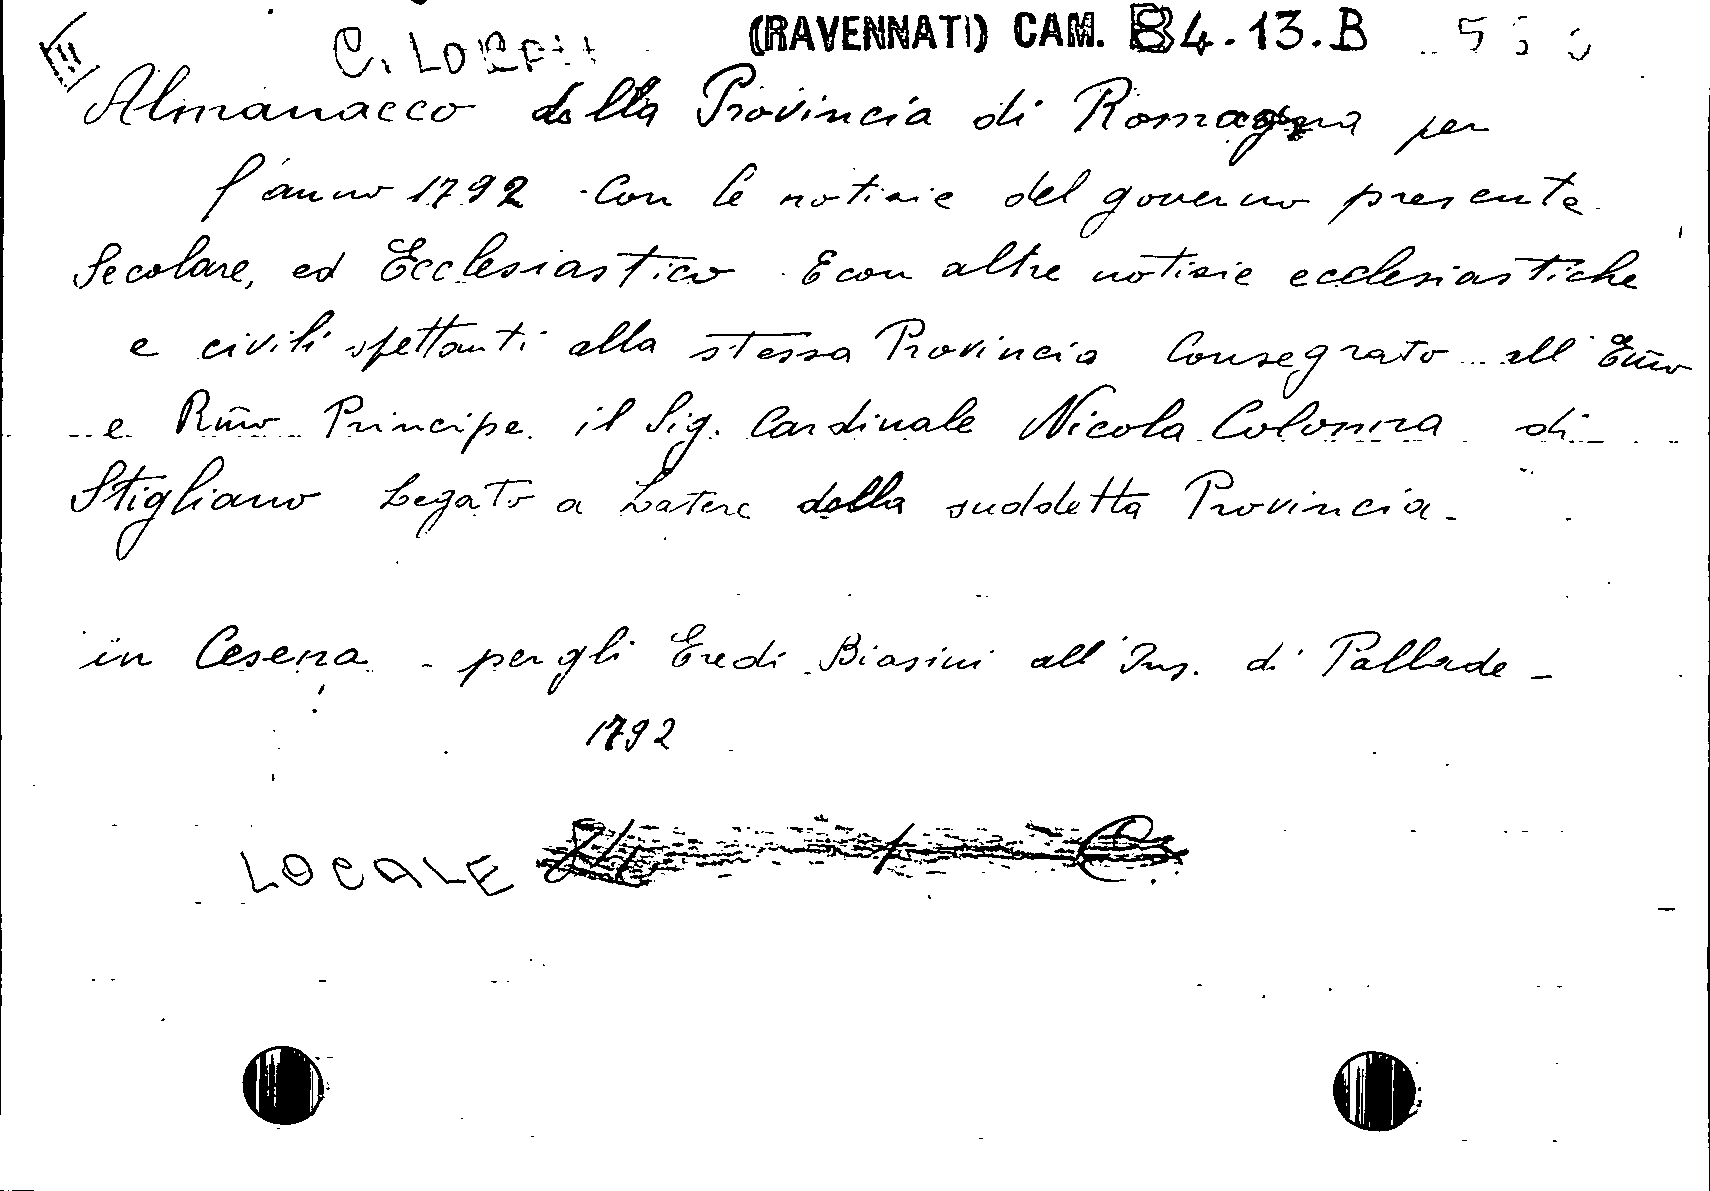 (RAVENNATI) CAM. B4.13.B
Almanacco della Provincia di Romagna per
l'anno 1792 Con le notizie del governo presente
Secolare, ed Ecclesiastico E con altre notizie ecclesiastiche
e civili spettanti alla stessa Provincia Consegrato all'Em̃o
e Rm̃o Principe il Sig. Cardinale Nicola Colonna di
Stigliano Legato a Latere della suddetta Provincia.
in Cesena - per gli Eredi Biasini all'Ins. di Pallade -
1792
LOCALE